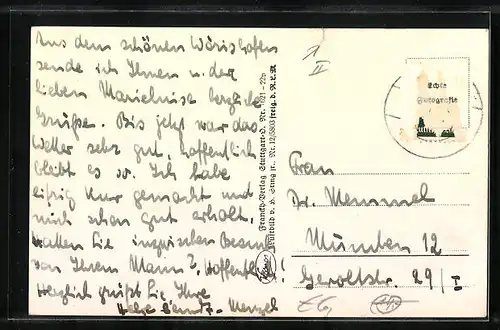 Aus dem schönen Wörishofen
sende ich Ihnen u. der
lieben Marieluise herzliche
Grüße. Bis jetzt war das
Wetter sehr gut, hoffentlich
bleibt es so. Ich habe
eifrig Kur gemacht und
mich schon gut erholt.
Hatten Sie inzwischen Besuch
von Ihrem Mann? Hoffentlich!
Herzlich grüßt Sie Ihre
Menzel
Franckh-Verlag Stuttgart-O. Nr.
freig. d. R.L.M.
II
Echte
Fotografie
Frau
Dr. Hemmel
München 12
Geroltstr. 29/I